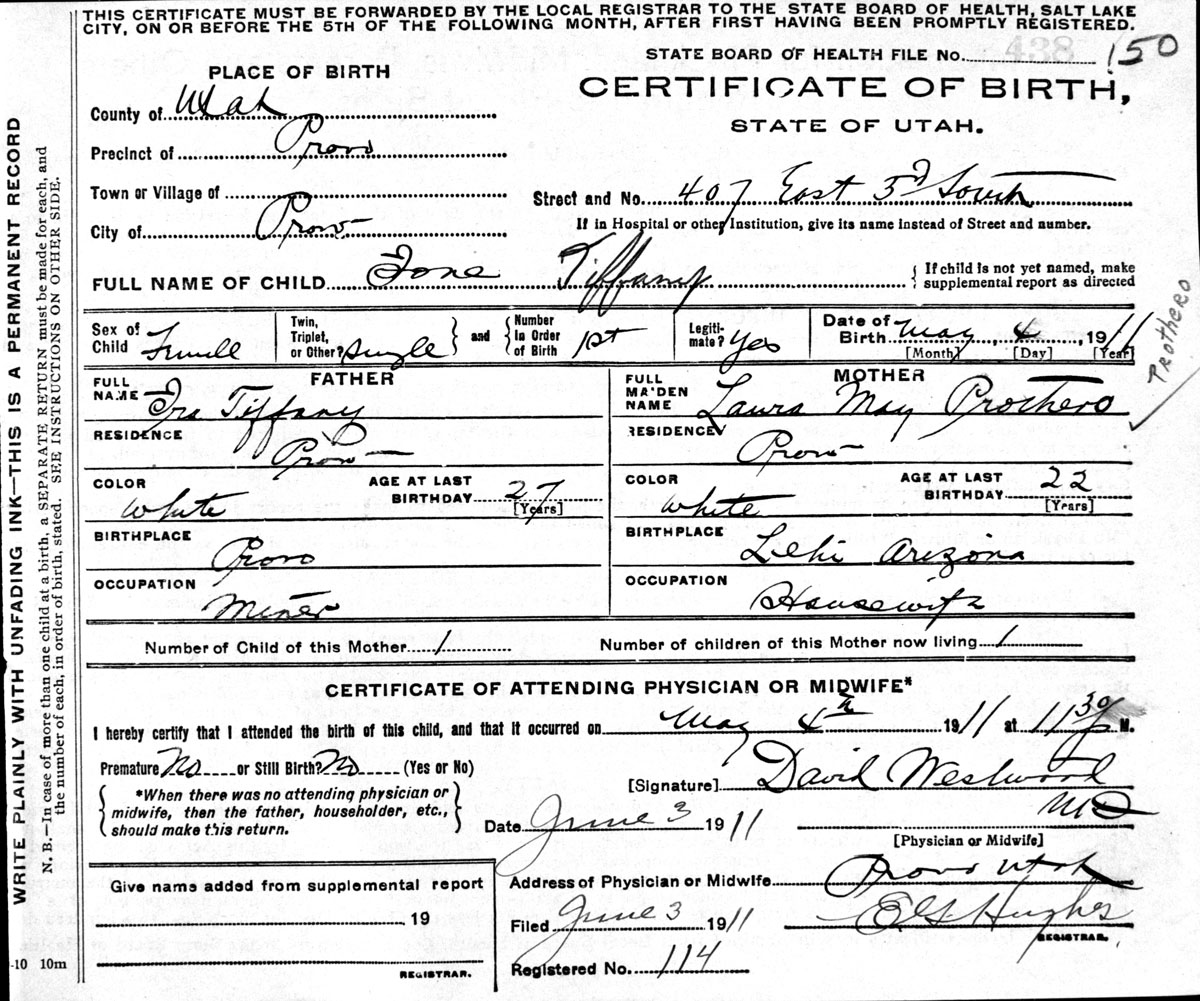 THIS CERTIFICATE MUST BE FORWARDED BY THE LOCAL REGISTRAR TO THE STATE BOARD OF HEALTH, SALT LAKE
CITY, ON OR BEFORE THE 5TH OF THE FOLLOWING MONTH, AFTER FIRST HAVING BEEN PROMPTLY REGISTERED.
STATE BOARD OF HEALTH FILE No. 438 150
PLACE OF BIRTH
CERTIFICATE OF BIRTH,
STATE OF UTAH.
County of Utah
Precinct of Provo
Town or Village of
Street and No. 407 East 3d South
City of Provo
If in Hospital or other Institution, give its name instead of Street and number.
FULL NAME OF CHILD Ione Tiffany
If child is not yet named, make
supplemental report as directed
Sex of
Child Female
Twin,
Triplet,
or Other? Single
and
Number
in Order
of Birth 1st
Legiti-
mate? Yes
Date of
Birth May 4 1911
[Month] [Day] [Year]
Prothero
FATHER
FULL
NAME Ira Tiffany
RESIDENCE
Provo
COLOR
White
AGE AT LAST
BIRTHDAY 27
[Years]
BIRTHPLACE
Provo
OCCUPATION
Miner
MOTHER
FULL
MAIDEN
NAME Laura May Prothero
RESIDENCE
Provo
COLOR
White
AGE AT LAST
BIRTHDAY 22
[Years]
BIRTHPLACE
Lehi Arizona
OCCUPATION
Housewife
Number of Child of this Mother 1
Number of children of this Mother now living 1
CERTIFICATE OF ATTENDING PHYSICIAN OR MIDWIFE*
I hereby certify that I attended the birth of this child, and that it occurred on May 4th 1911 at 11 30 P M.
Premature No or Still Birth? No (Yes or No)
[Signature] David Westwood
MD
*When there was no attending physician or
midwife, then the father, householder, etc.,
should make this return.
Date June 3 1911
[Physician or Midwife]
Give name added from supplemental report
19
REGISTRAR.
Address of Physician or Midwife Provo Utah
Filed June 3 1911
E G Hughes
REGISTRAR.
Registered No. 114
-10 10m
WRITE PLAINLY WITH UNFADING INK—THIS IS A PERMANENT RECORD
N. B.—In case of more than one child at a birth, a SEPARATE RETURN must be made for each, and
the number of each, in order of birth, stated. SEE INSTRUCTIONS ON OTHER SIDE.